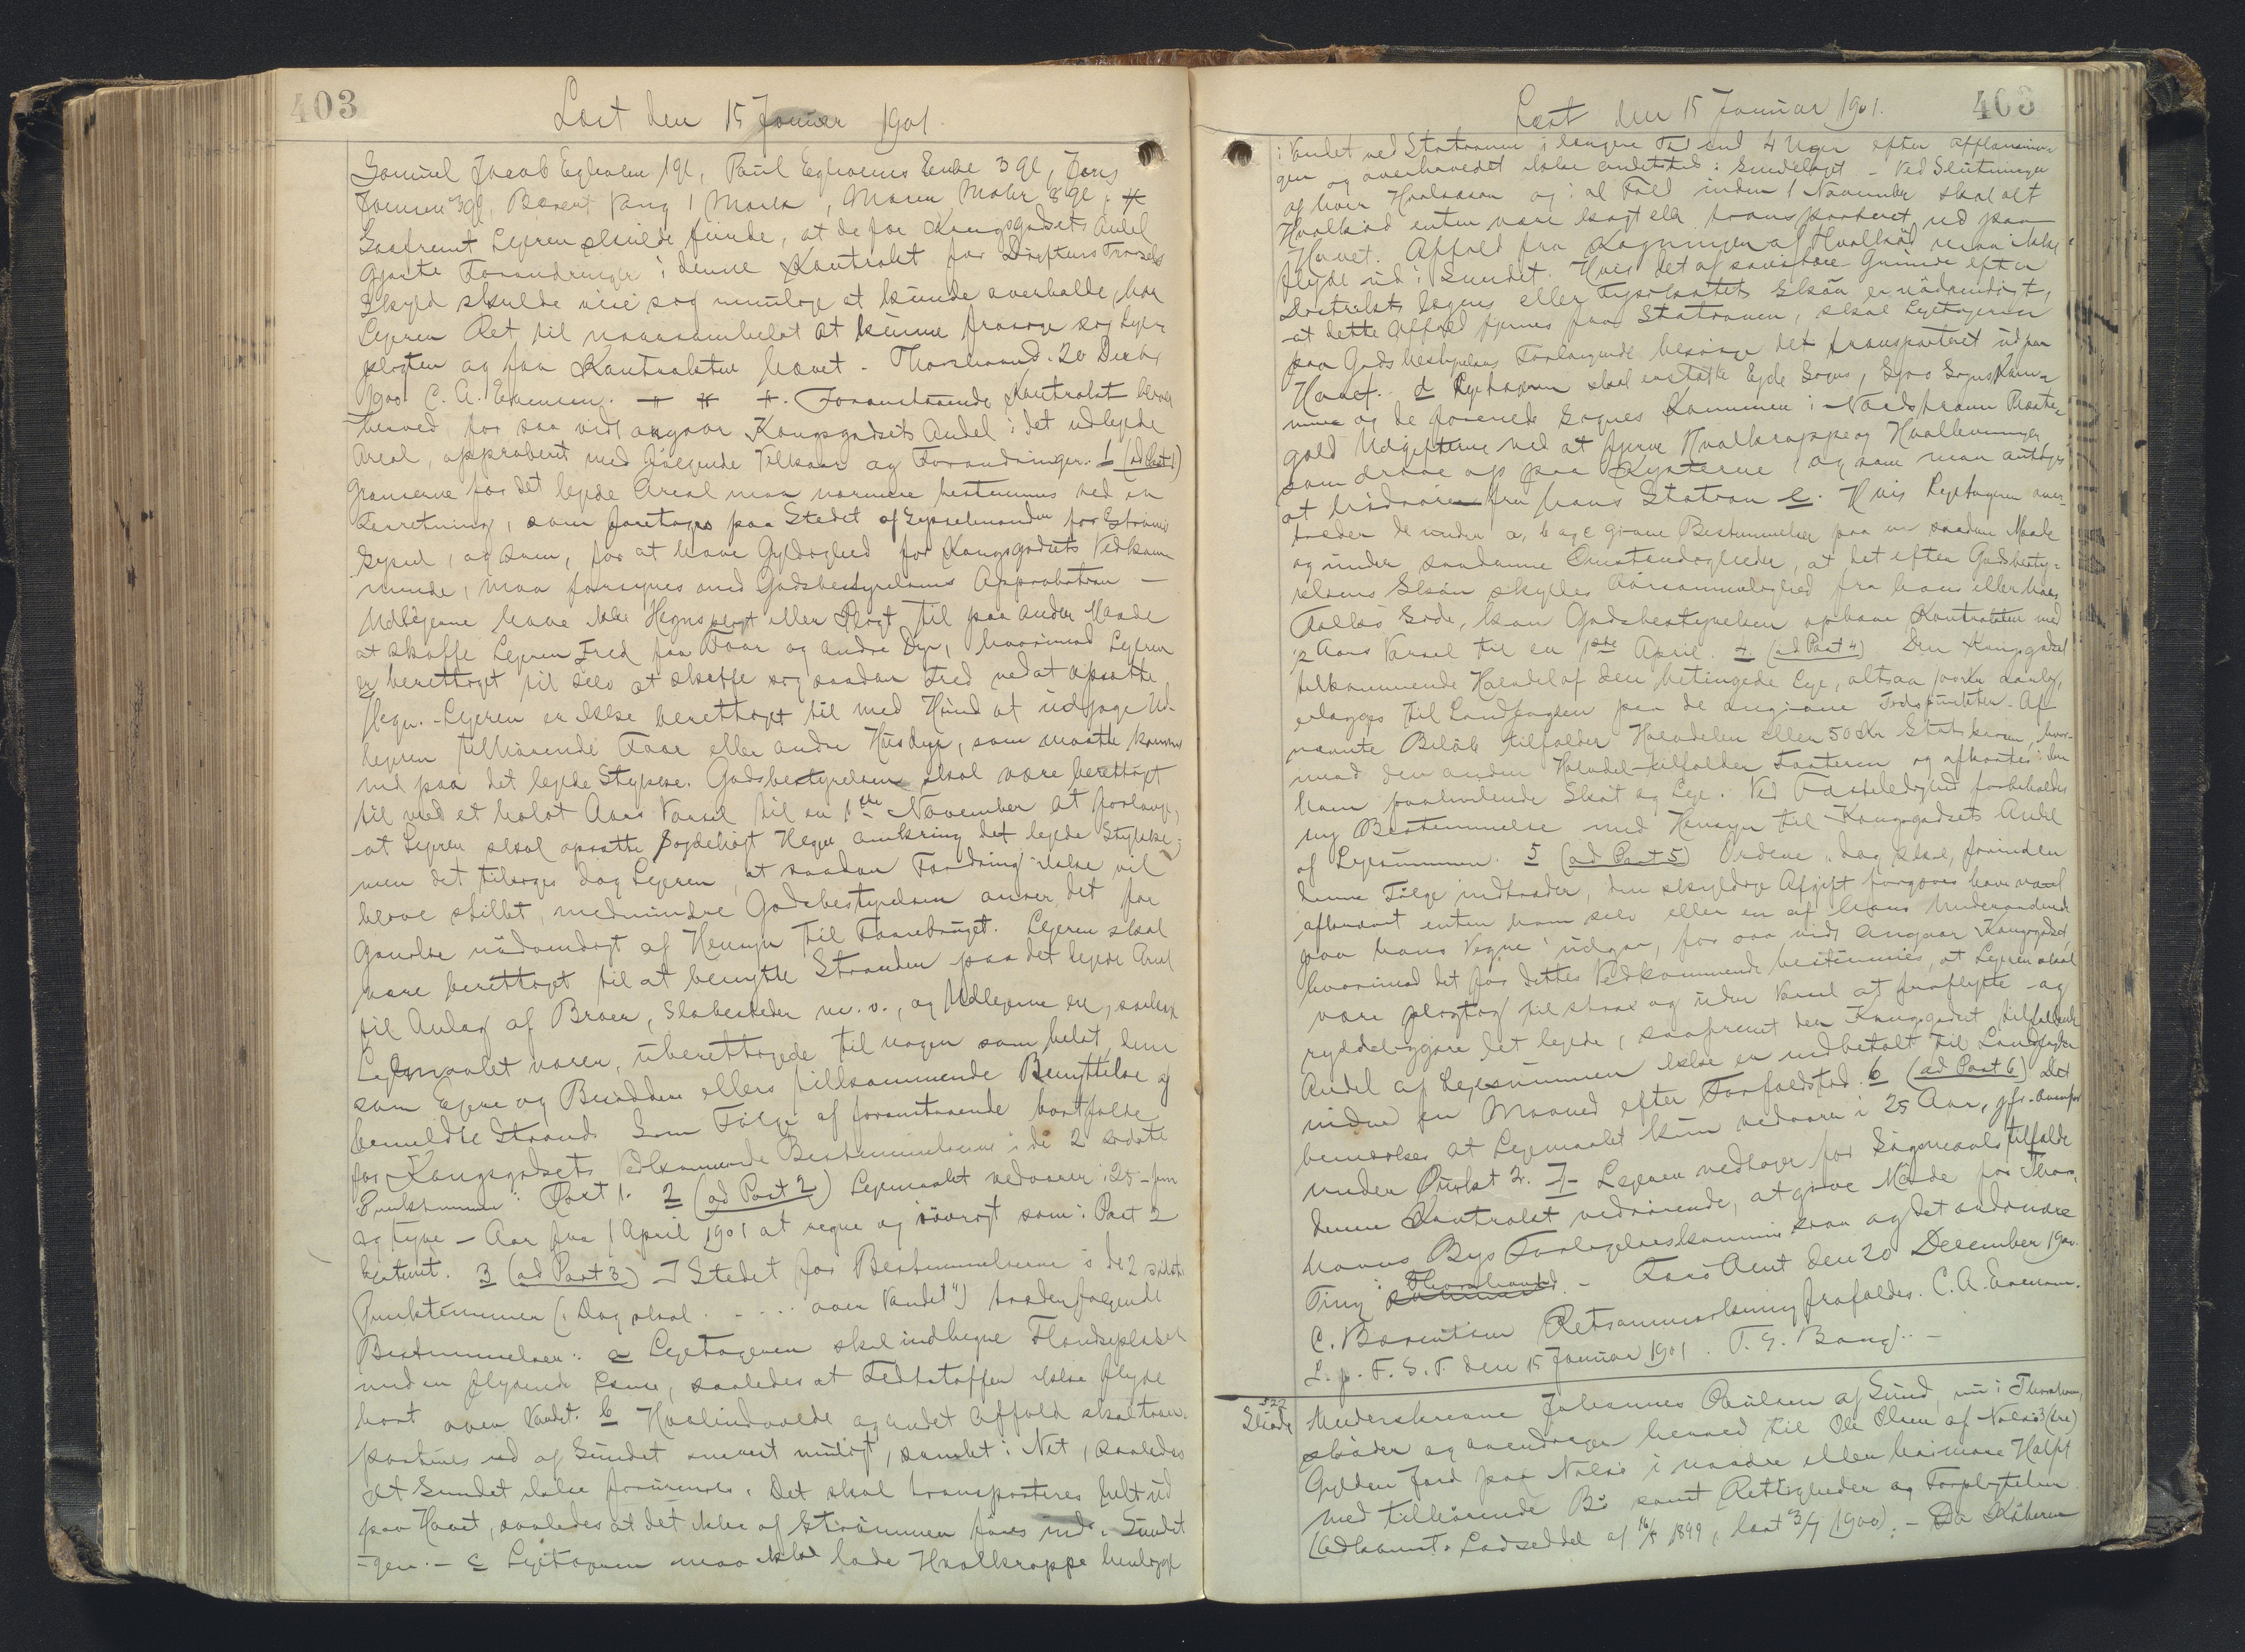 403
Læst den 15 Januar 1901.
Samuel Jacob Egholm 1 gl, Poul Egholms Enke 3 gl, Jens
Joensen 3 gl, Berent Vang 1 Mark, Maren Mohr 8 gl.
Saafremt Lejeren skulde finde, at de for Kongsgodsets Andel
gjorte Forandringer i denne Kontrakt for Driftens Trods
Skyld skulde vise sig umulige at kunde overholde, har
Lejeren Ret til naarsomhelst at kunne frasige sig Leje-
pligten og faa Kontrakten hævet. Thorshavn d. 20 Decbr
1900 C. A. Evensen. Foranstaaende Kontrakt bliver
herved for saa vidt angaar Kongsgodsets Andel i det udlejede
Areal, approberet med følgende Vilkaar og Forandringer. 1 (ad Post 1)
Grænserne for det lejede Areal maa nærmere bestemmes ved en
Forretning, som foretages paa Stedet af Sysselmanden for Strømø
Syssel, og som, for at have Gyldighed for Kongsgodsets Vedkom-
mende, maa forsynes med Godsbestyrelsens Approbation –
Udlejerne have ikke Hegnspligt eller Pligt til paa anden Maade
at skaffe Lejeren Fred for Faar og andre Dyr, hvorimod Lejeren
er berettiget til selv at skaffe sig saadan Fred ved at opsætte
Hegn. Lejeren er ikke berettiget til med Hund at udjage Ud-
lejeren tilhørende Faar eller andre Husdyr, som maatte komme
ind paa det lejede Stykke. Godsbestyrelsen skal være berettiget
til med et halvt Aars Varsel til en 1ste November at forlange,
at Lejeren skal opsætte forsvarligt Hegn omkring det lejede Stykke;
men det tilsiges dog Lejeren, at saadan Fordring ikke vil
blive stillet, medmindre Godsbestyrelsen anser det for
ganske nødvendigt af Hensyn til Faarebruget. Lejeren skal
være berettiget til at benytte Stranden paa det lejede Areal
til Anlæg af Broer, Slæbesteder m. v., og Udlejerne ere, saalænge
Lejemaalet varer, uberettigede til nogen som helst dem
som Ejere og Besiddere ellers tilkommende Benyttelse af
bemeldte Strand. Som Følge af foranstaaende bortfalde
for Kongsgodsets Vedkommende Bestemmelserne i de 2 sidste
Punktummer i Post 1. 2 (ad Post 2) Lejemaalet vedvarer i 25 – fem
og tyve – Aar fra 1 April 1901 at regne og iøvrigt som i Post 2
bestemt. 3 (ad Post 3) I Stedet for Bestemmelserne i de 2 sidste
Punktummer ("Dog skal . . . . over Vandet") træder følgende
Bestemmelser: a Lejetageren skal indhegne Flænsepladsen
med en flydende Lænse, saaledes at Fedtstoffer ikke flyde
bort over Vandet. b Hvalindvolde og andet Affald skal trans-
porteres ud af Sundet snarest muligt, samlet i Net, saaledes
at Sundet ikke forurenes. Det skal transporteres helt ud
paa Havet, saaledes at det ikke af Strømmen føres ind i Sundet
igen. – c Lejetageren maa ikke lade Hvalkroppe henligge
403
Læst den 15 Januar 1901.
i Vandet ved Stationen i længere Tid end 4 Uger efter Afflænsnin-
gen og overhovedet ikke andetsteds i Sundelaget – Ved Slutningen
af hver Hvalsæson og i al Fald inden 1 November skal alt
Hvalkød enten være kogt eller transporteret ud paa
Havet. Affald fra Kogningen af Hvalkød maa ikke
flyde ud i Sundet. Hvis det af sanitære Grunde efter
Distriktslægens eller Fysikatets Skøn er nødvendigt,
at dette Affald fjernes fra Stationen, skal Lejetageren
paa Godsbestyrelsens Forlangende besørge det transporteret ud paa
Havet. d Lejetageren skal erstatte Ejde Sogns, Sjov Sogns Kom-
mune og de forenede Sognes Kommune i Nordstrømø Præste-
gæld Udgifterne ved at fjerne Hvalkroppe og Hvallevninger
som drive op paa Kysterne og som man antages
at hidrøre fra hans Station e. Hvis Lejetageren over-
træder de under a, b og c givne Bestemmelser paa en saadan Maade
og under saadanne Omstændigheder, at det efter Godsbesty-
relsens Skøn skyldes Forsømmelighed fra hans eller hans
Folks Side, kan Godsbestyrelsen ophæve Kontrakten med
½ Aars Varsel til en 1ste April. 4. (ad Post 4) Den Kongsgodset
tilkommende Halvdel af den betingede Leje, altsaa 100 Kr aarlig,
erlægges til Landfogden paa de angivne Tidspunkter. Af
nævnte Beløb tilfalder Halvdelen eller 50 Kr Statskassen, hvor-
imod den anden Halvdel tilfalder Fæsteren og afkortes i den
ham paahvilende Skat og Leje. Ved Fæsteledighed forbeholdes
ny Bestemmelse med Hensyn til Kongsgodsets Andel
af Lejesummen. 5 (ad Post 5) Ordene "dog skal, forinden
denne Følge indtræder, den skyldige Afgift forgæves have været
afkrævet enten ham selv eller en af hans Underordnede
paa hans Vegne" udgaa, for saa vidt angaar Kongsgodset,
hvorimod det for dettes Vedkommende bestemmes, at Lejeren skal
være pligtig til strax og uden Varsel at fraflytte og
ryddeliggjøre det lejede, saafremt den Kongsgodset tilfaldende
Andel af Lejesummen ikke er indbetalt til Landfogden
inden en Maaned efter Forfaldstid. 6 (ad Post 6) Det
bemærkes at Lejemaalet kun vedvarer i 25 Aar, jfr. ovenfor
under Punkt 2. 7 – Lejeren vedtager for Søgsmaals tilfælde
denne Kontrakt vedrørende, at give Møde for Thors-
havns Bys Forligelseskommission og det ordinære
Ting i Thorshavn. – Færø Amt den 20 December 1900.
C. Bærentsen Retsanmærkning frafaldes. C. A. Evensen.
L. p. F. S. T. den 15 Januar 1901. T. S. Bang. –
522
Skøde
Underskrevne Johannes Poulsen af Sund, nu i Thorshavn,
skøder og overdrager herved til Ole Olsen af Nolsø 3 (tre)
Gylden Jord paa Nolsø i nordre eller heimare Halft
med tilhørende Bø samt Rettigheder og Forpligtelser
(Adkomst: Lodseddel af 16/5 1899, læst 3/7 1900). – Da Køberen